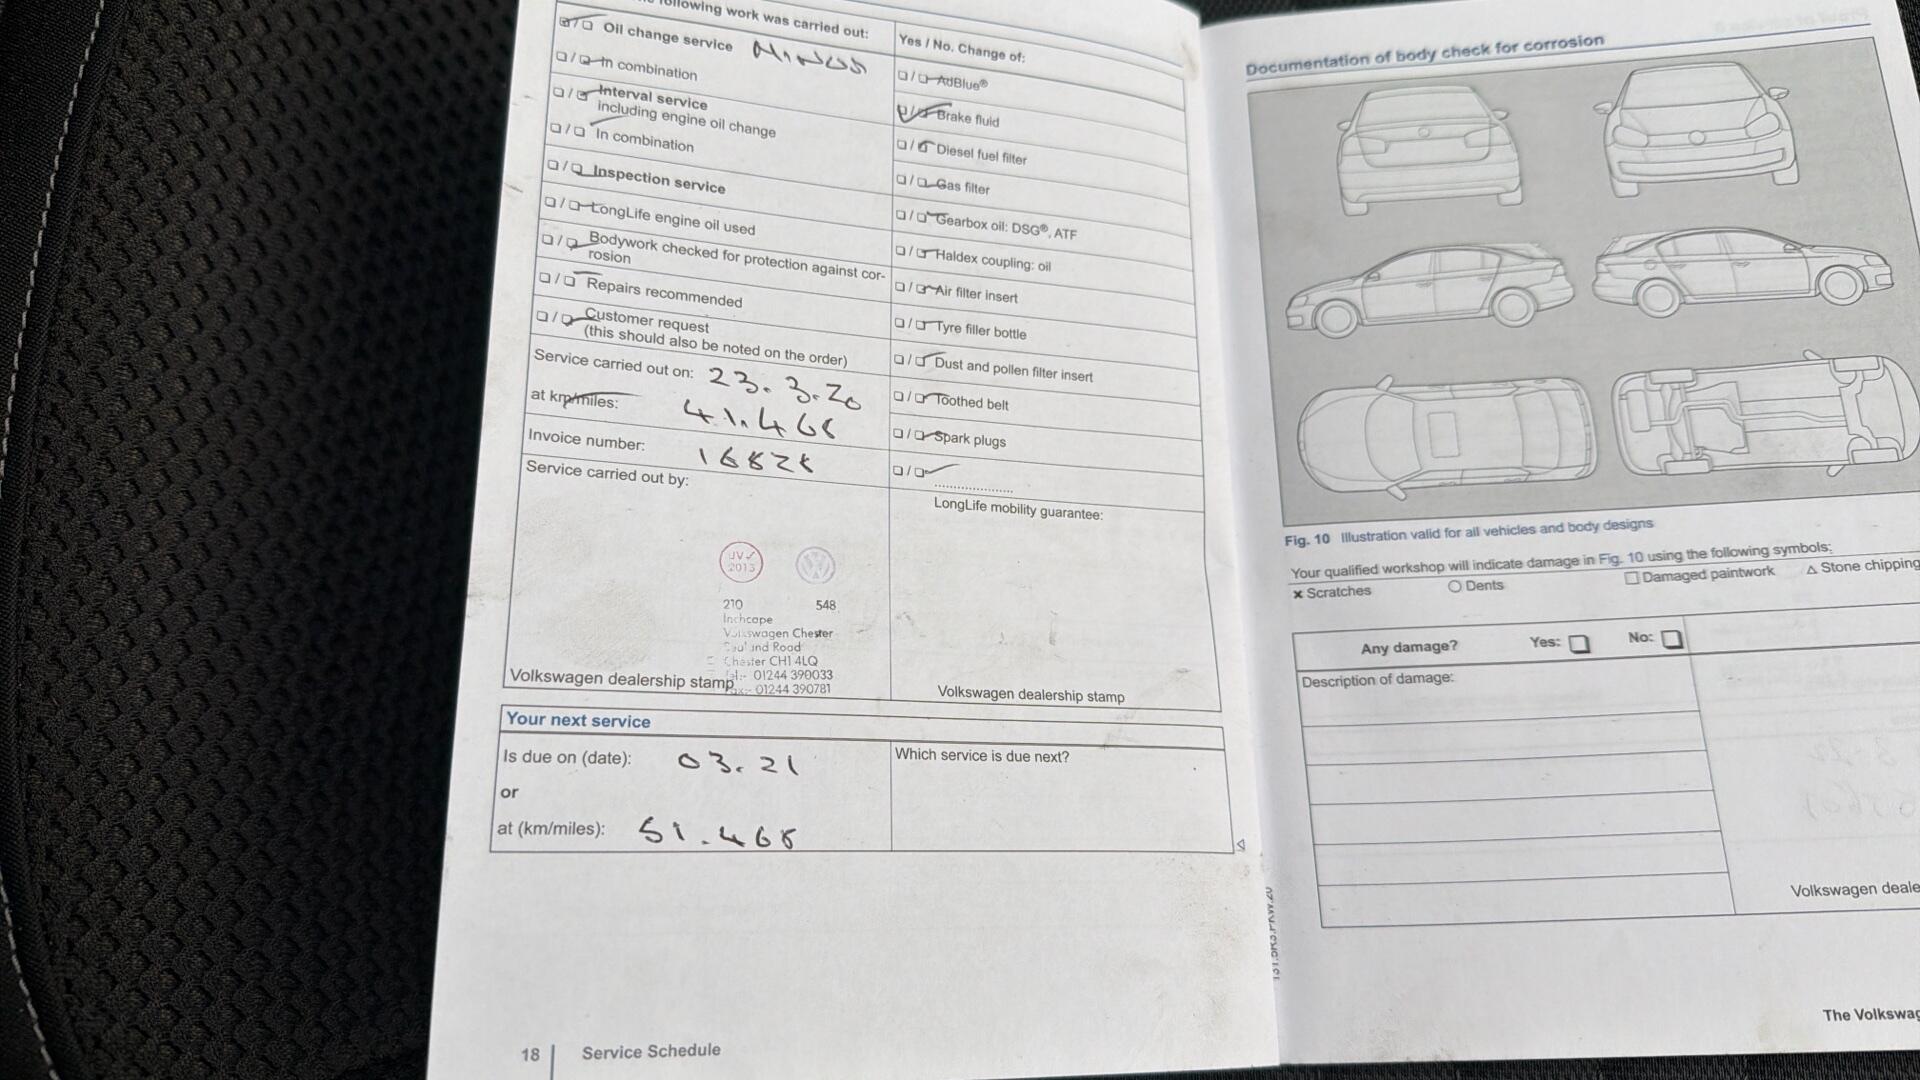 following work was carried out:
Oil change service MINOR
In combination
Interval service
including engine oil change
In combination
Inspection service
LongLife engine oil used
Bodywork checked for protection against cor-
rosion
Repairs recommended
Customer request
(this should also be noted on the order)
Service carried out on: 23.3.20
at km/miles: 41.468
Invoice number: 16828
Service carried out by:
JV✓
2013
210 548
Inchcape
Volkswagen Chester
Road
Chester CH1 4LQ
Tel:- 01244 390033
Fax:- 01244 390781
Volkswagen dealership stamp
Yes / No. Change of:
AdBlue®
Brake fluid
Diesel fuel filter
Gas filter
Gearbox oil: DSG®, ATF
Haldex coupling: oil
Air filter insert
Tyre filler bottle
Dust and pollen filter insert
Toothed belt
Spark plugs
LongLife mobility guarantee:
Volkswagen dealership stamp
Your next service
Is due on (date): 03.21
or
at (km/miles): 51.468
Which service is due next?
18 Service Schedule
Documentation of body check for corrosion
Fig. 10 Illustration valid for all vehicles and body designs
Your qualified workshop will indicate damage in Fig. 10 using the following symbols:
× Scratches ○ Dents □ Damaged paintwork △ Stone chipping
Any damage? Yes: No:
Description of damage:
Volkswagen deale
The Volkswag